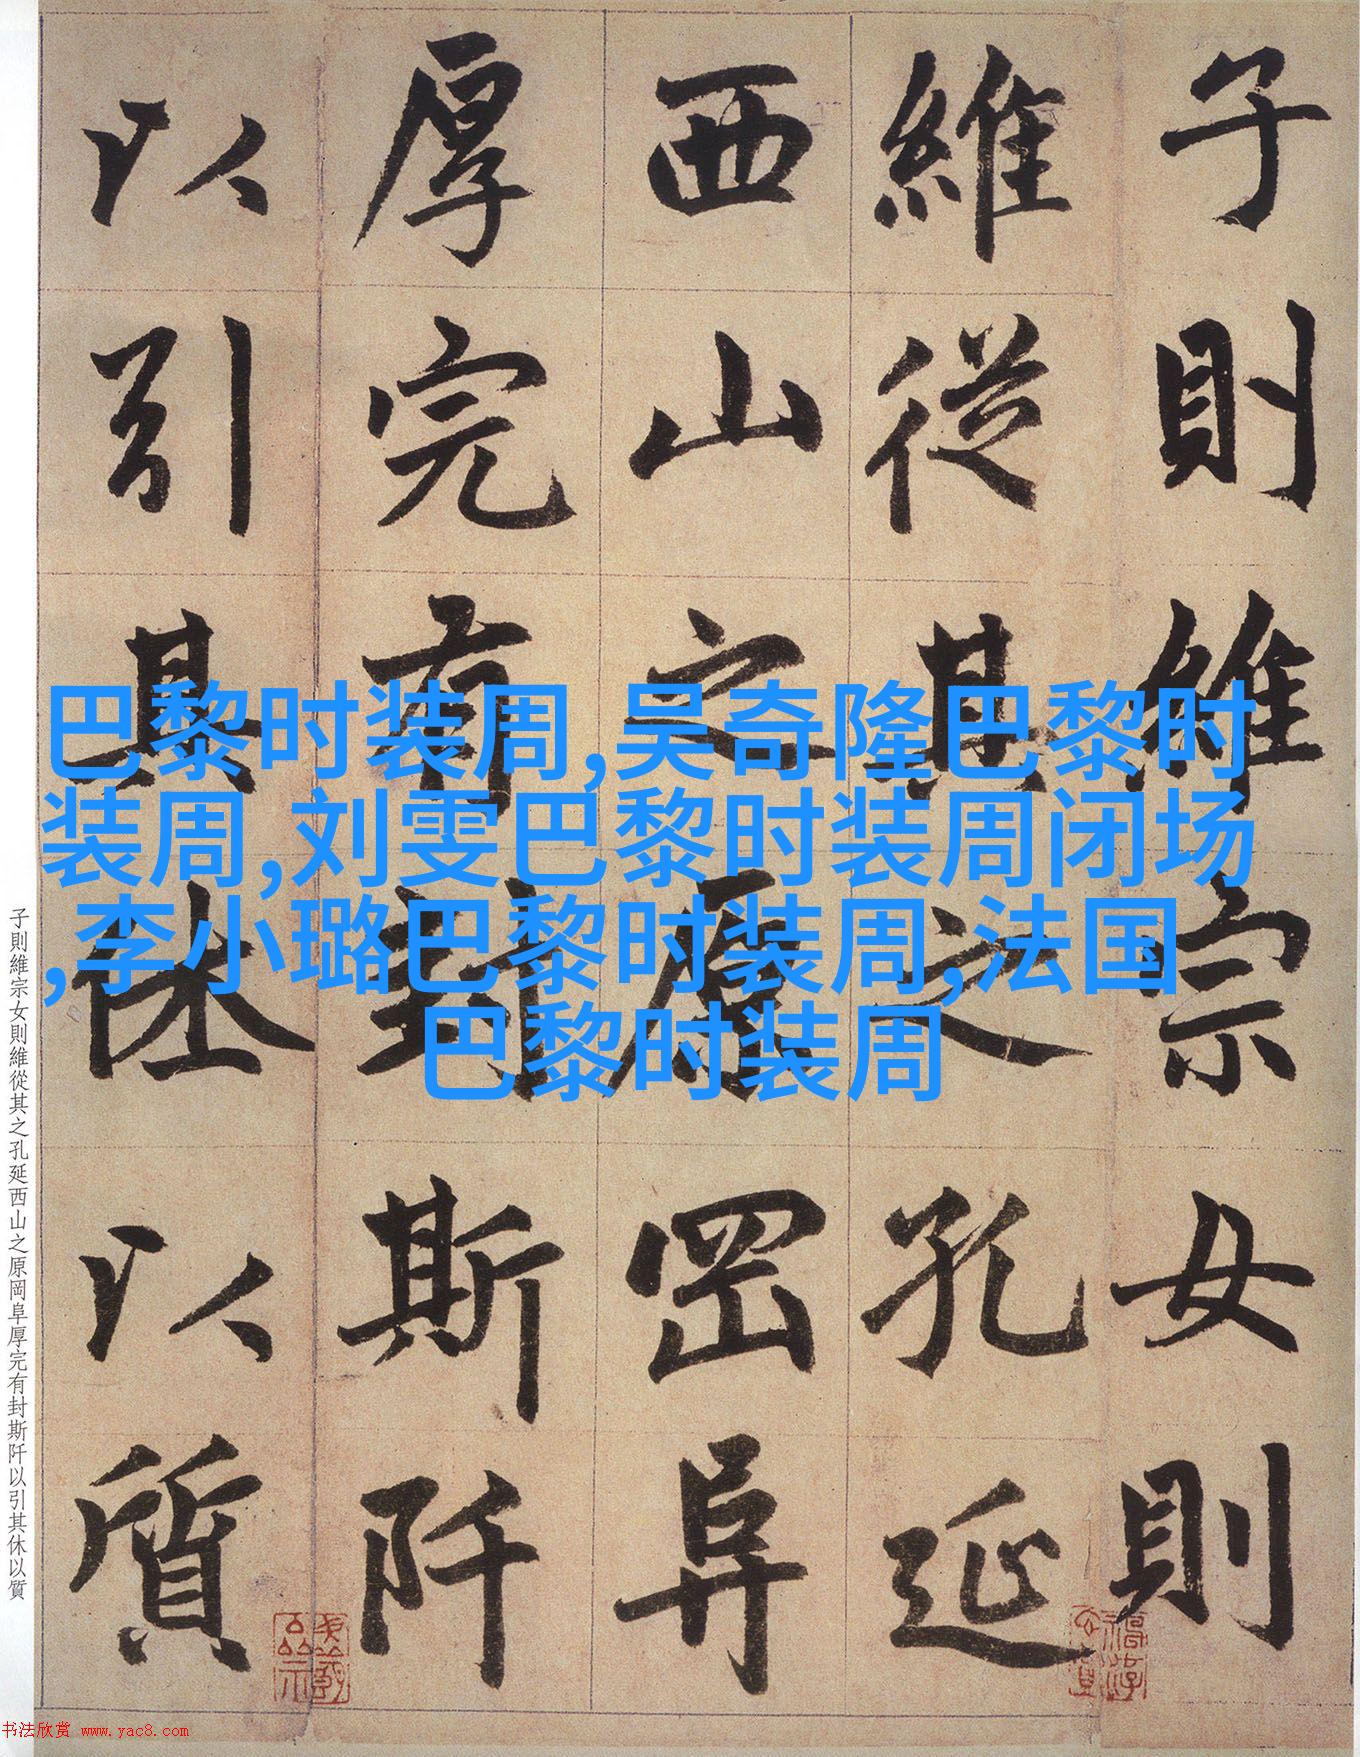 子則維宗女則
維從其之孔延
西山之原罡阜
厚完有封斯阡
以引其休以質
巴黎时装周,吴奇隆巴黎时
装周,刘雯巴黎时装周闭场
,李小璐巴黎时装周,法国
巴黎时装周
子則維宗女則維從其之孔延西山之原岡阜厚完有封斯阡以引其休以質
书法欣赏 www.yac8.com